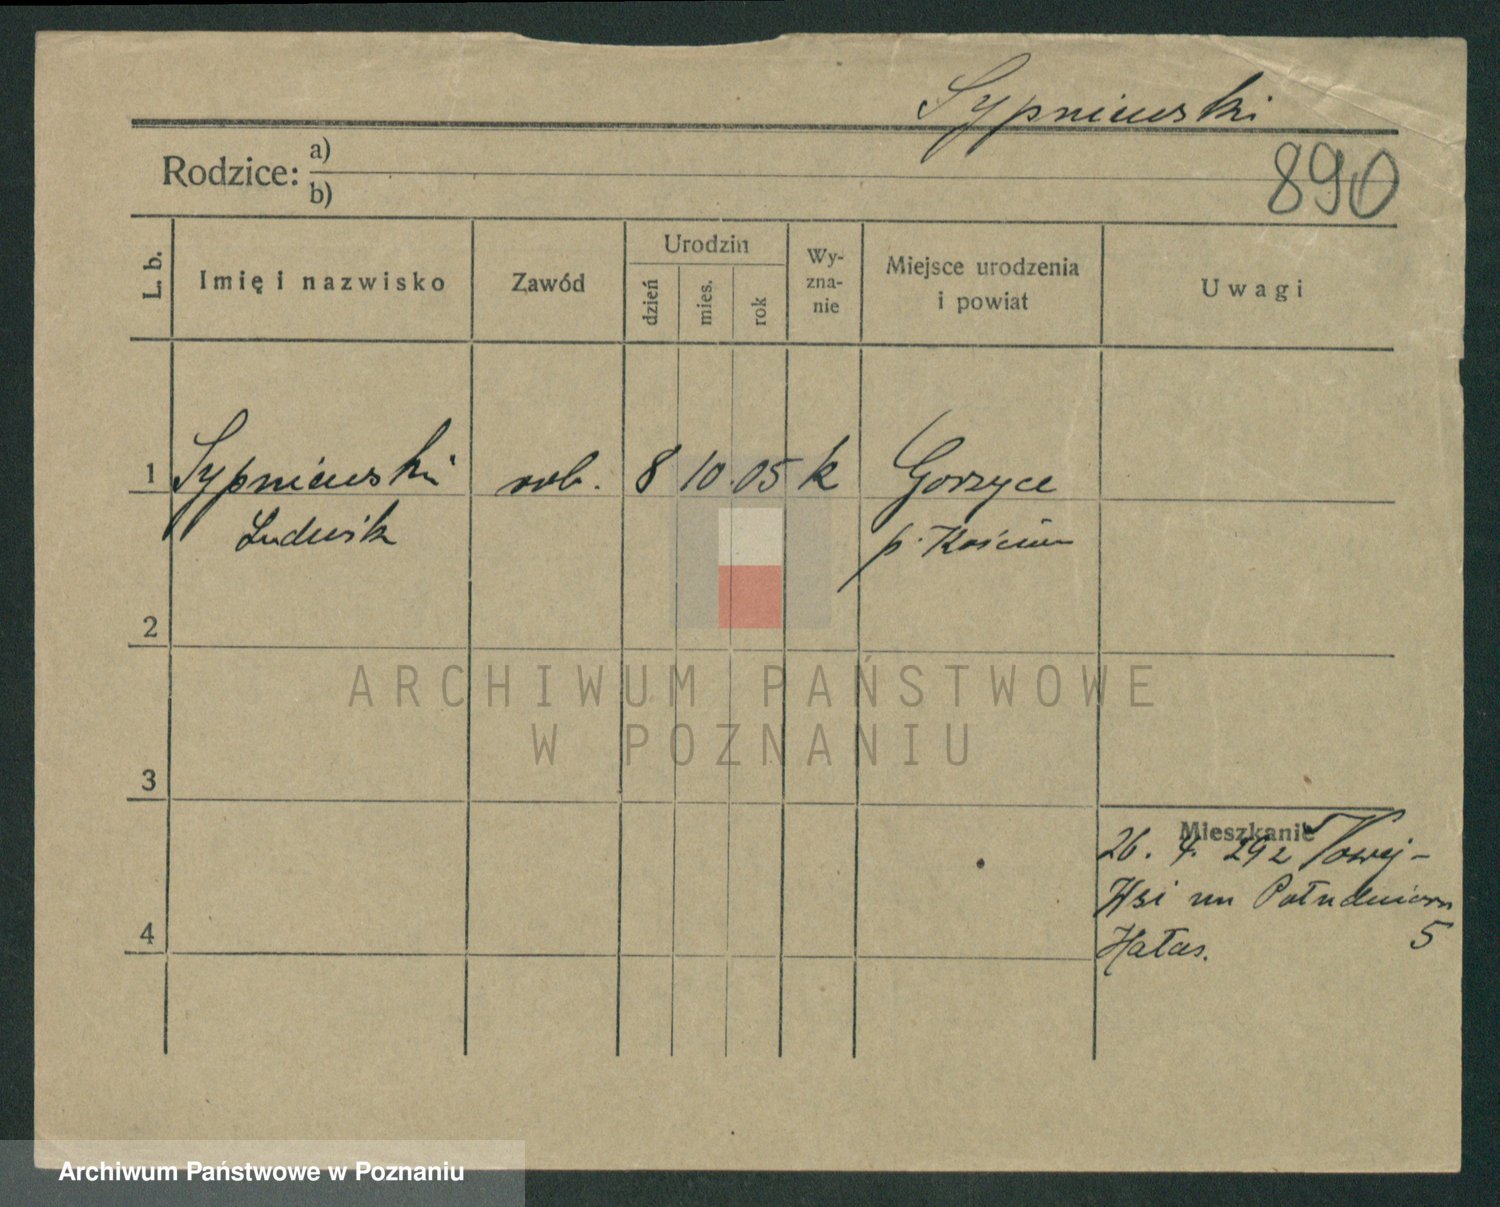 Sypniewski
890
Rodzice: a)
b)
L. b.
Imię i nazwisko
Zawód
Urodzin
dzień
mies.
rok
Wy-
zna-
nie
Miejsce urodzenia
i powiat
Uwagi
1 Sypniewski rob. 8 10 05 k Gorzyce
Ludwik p. Kościan
2
ARCHIWUM PAŃSTWOWE
W POZNANIU
3
Mieszkanie
26. 4. 29 z Nowej-
Wsi na Południowa
4
5
Hałas.
Archiwum Państwowe w Poznaniu